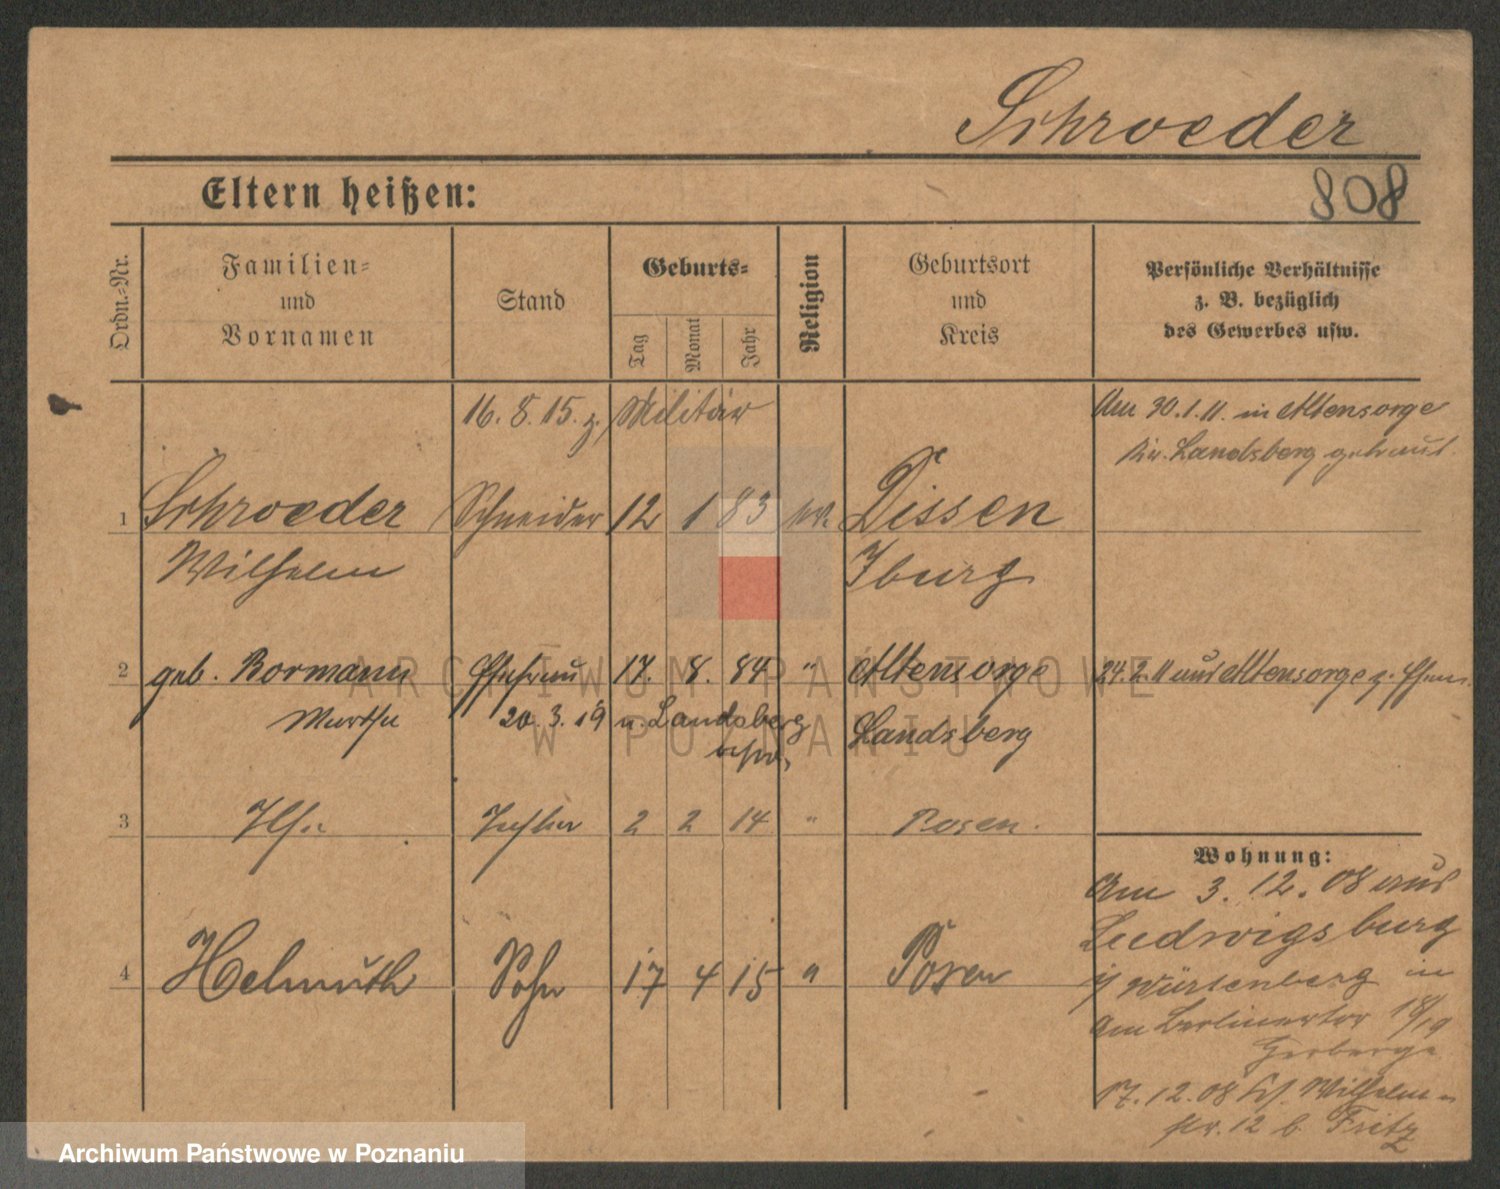 Schroeder
Eltern heißen:
808
Ordn.=Nr.
Familien=
und
Vornamen
Stand
Geburts=
Tag
Monat
Jahr
Religion
Geburtsort
und
Kreis
Persönliche Verhältnisse
z. B. bezüglich
des Gewerbes usw.
16. 8. 15. z. Militär
Am 30.1.11. in Altensorge
Kr. Landsberg getraut.
1 Schroeder Schneider 12 1 83 ev. Dissen
Wilhelm Iburg
2 geb. Bormann Ehefrau 17. 8. 84 " Altensorge 24.2.11 aus Altensorge z. Ehem.
Martha 20. 3. 19 n. Landsberg Landsberg
3 Ilse Tochter 2 2 14 " Posen.
Wohnung:
Am 3. 12. 08 aus
Ludwigsburg
i/ Würtenberg in
Am Berlinertor 18/19
Herberge
17. 12. 08 Wilhelm=
str. 12 b. Fritz
4 Helmuth Sohn 17 4 15 " Posen
ARCHIWUM PAŃSTWOWE
W POZNANIU
Archiwum Państwowe w Poznaniu